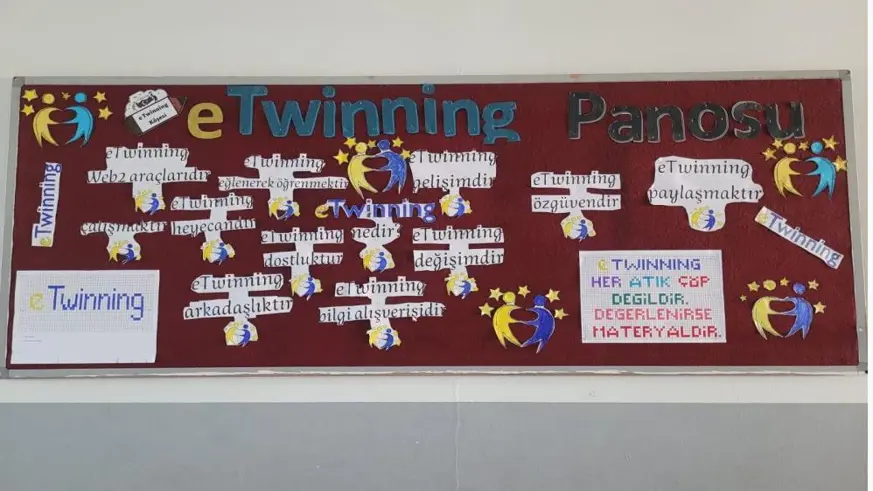 eTwinning Panosu
eTwinning
Köşesi
eTwinning
eTwinning
Web2 araçlarıdır
eTwinning
eğlenerek öğrenmektir
eTwinning
gelişimdir
eTwinning
özgüvendir
eTwinning
paylaşmaktır
çalışmaktır
eTwinning
heyecandır
eTwinning
nedir?
eTwinning
dostluktur
eTwinning
değişimdir
eTwinning
arkadaşlıktır
eTwinning
bilgi alışverişidir
eTwinning
eTwinning
e TWINNING
HER ATIK ÇÖP
DEĞİLDİR.
DEĞERLENİRSE
MATERYALDİR.